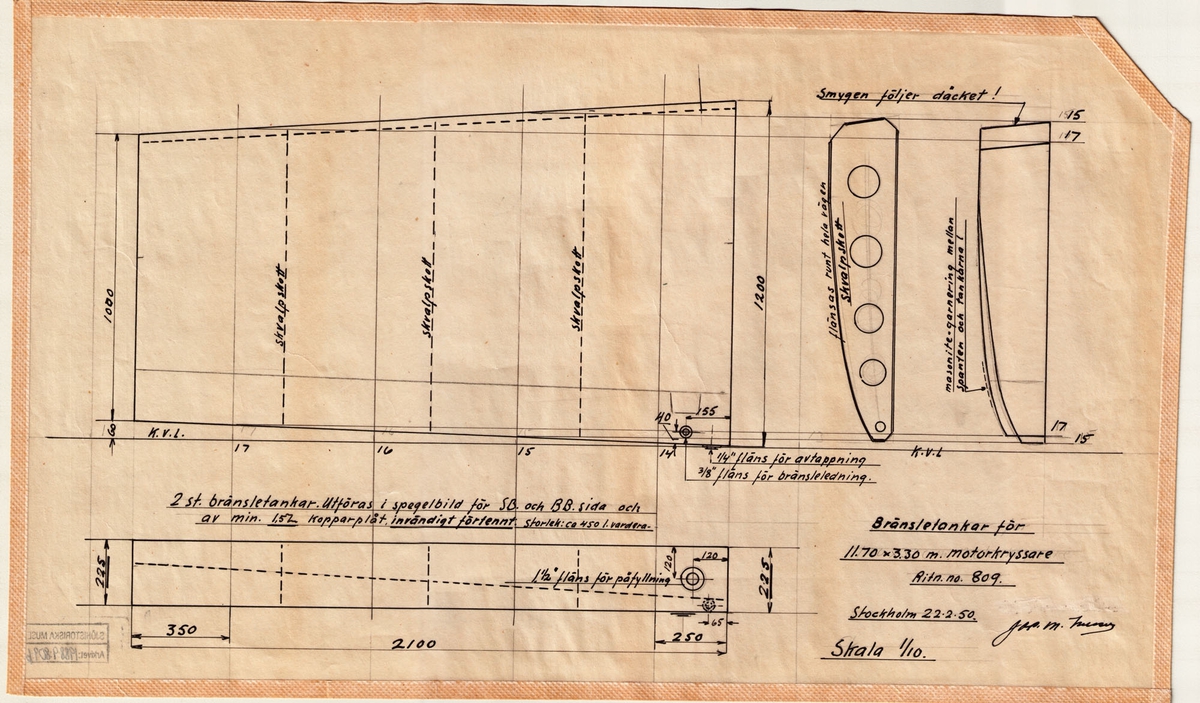 Smygen följer däcket!
15
17
1000
1200
skvalpskott
skvalpskott
skvalpskott
flänsas runt hela vägen
skvalpskott
masonite-garnering mellan
spanten och tankarna!
60
K.V.L.
17
16
15
14
40
155
1/4" fläns för avtappning
3/8" fläns för bränsleledning.
17
15
K.V.L
2 st. bränsletankar. Utföras i spegelbild för SB. och BB. sida och
av min. 1.52 kopparplåt, invändigt förtennt. storlek: ca 450 l. vardera.
225
1 1/2" fläns för påfyllning
120
120
65
225
350
2100
250
Bränsletankar för
11.70 x 3.30 m. motorkryssare
Ritn. no. 809.
Stockholm 22.2.50.
Skala 1/10.
SJÖHISTORISKA MUSE